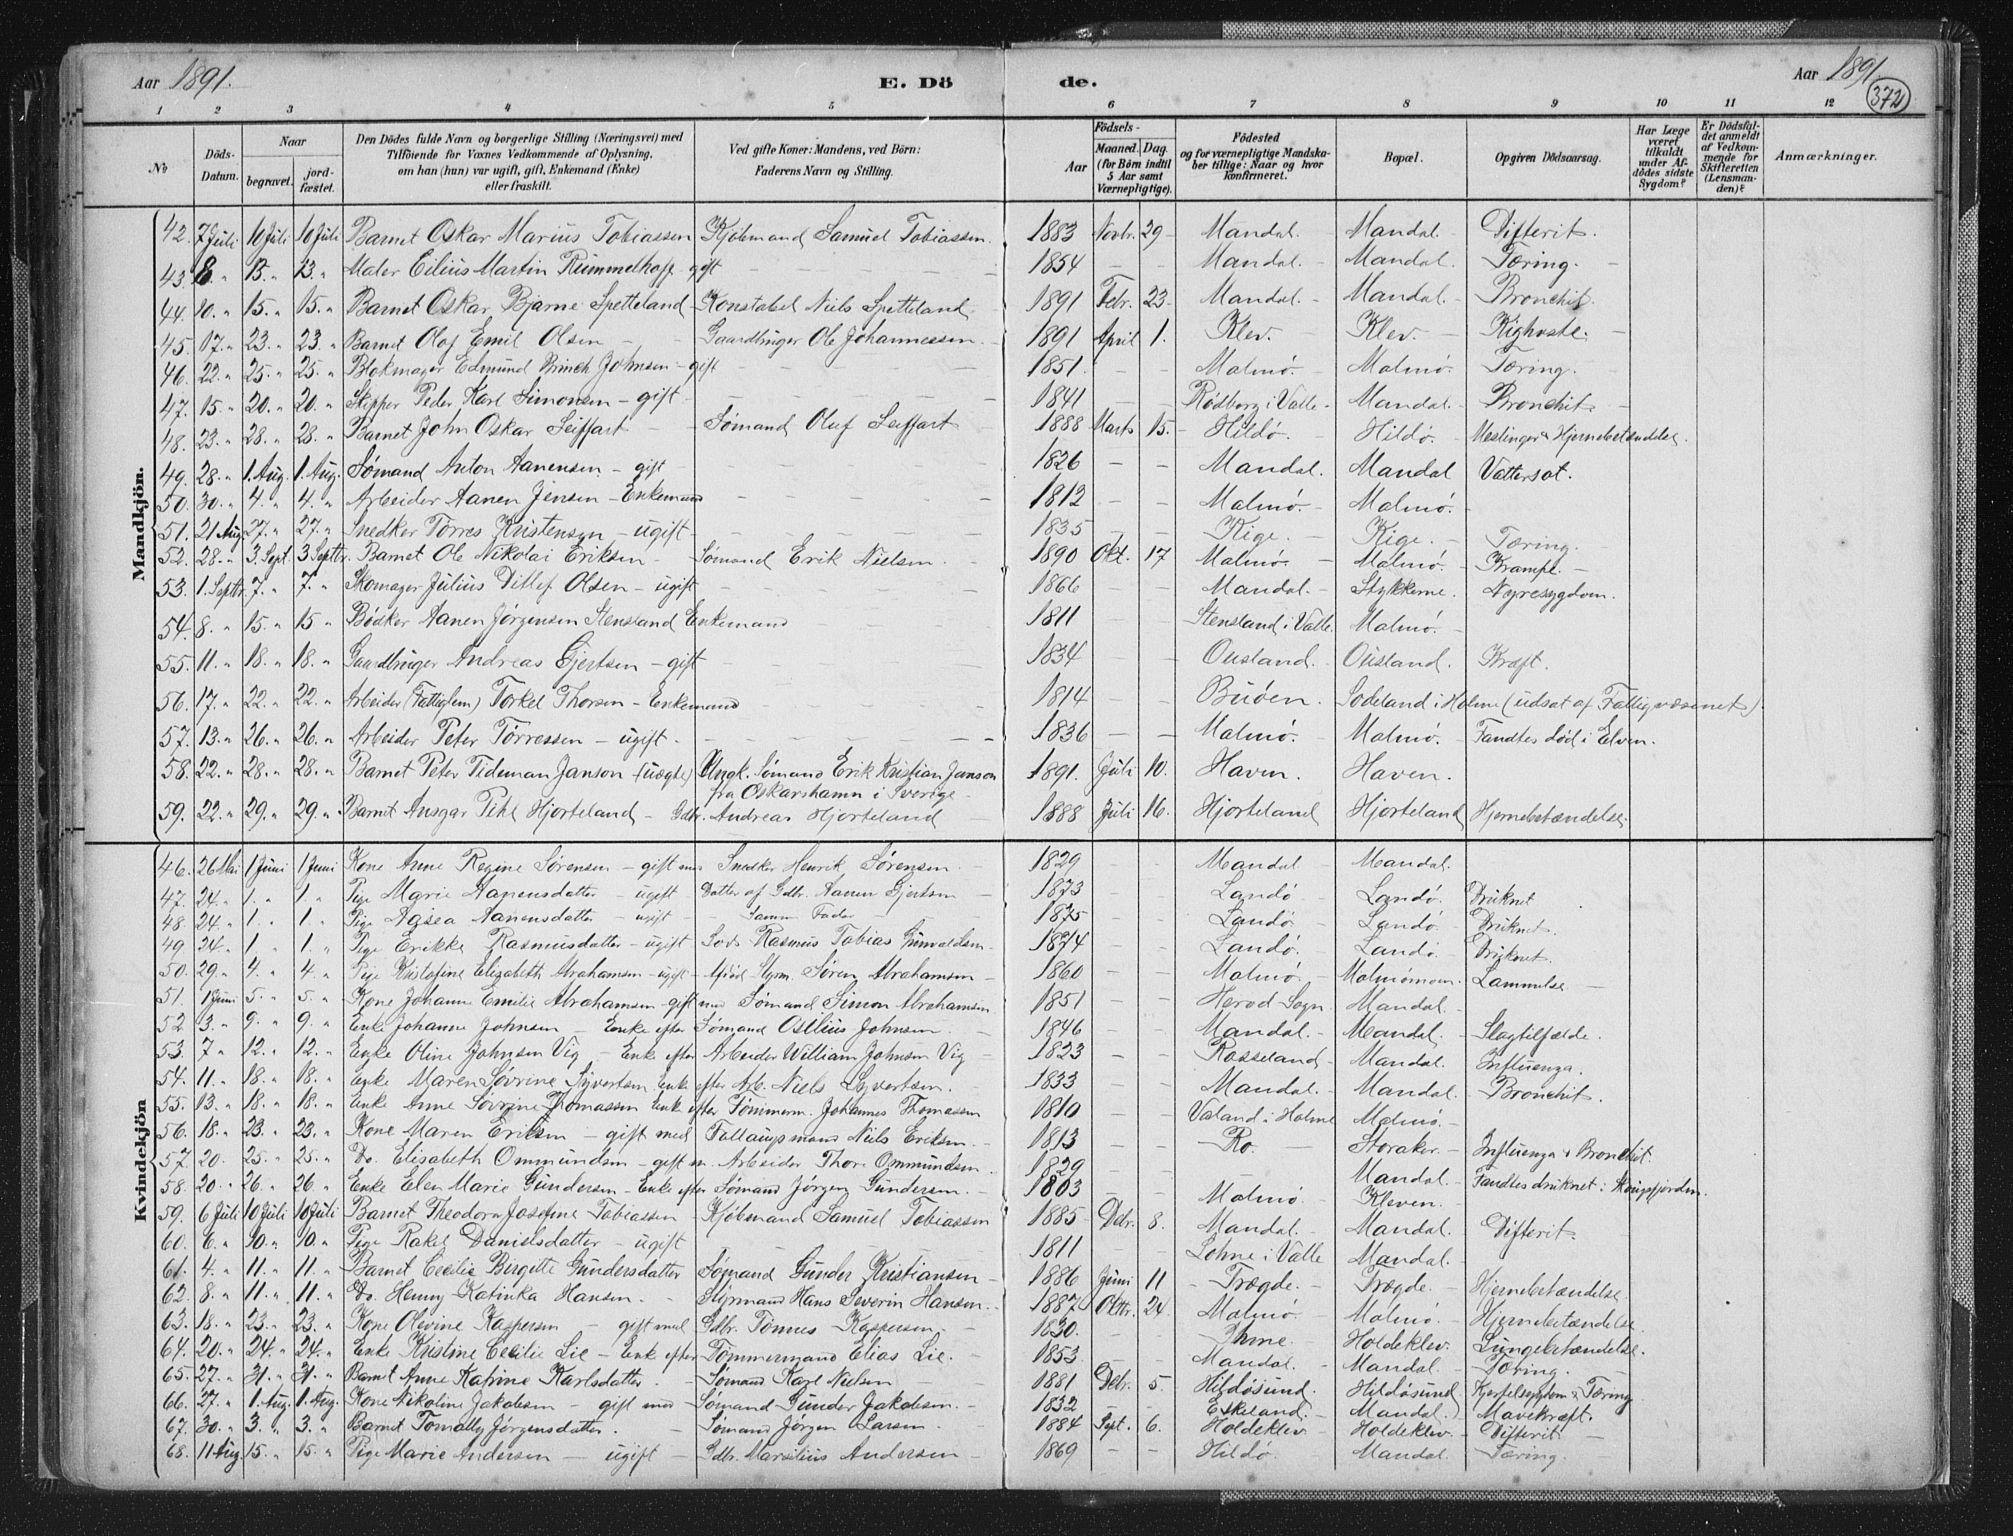 Aar 1891. E. Dö de. Aar 1891. 372
1 2 3 4 5 6 7 8 9 10 11 12
No Döds-Datum. Naar begravet. jordfæstet. Den Dödes fulde Navn og borgerlige Stilling (Næringsvei) med Tilföiende for Voxnes Vedkommende af Oplysning, om han (hun) var ugift, gift, Enkemand (Enke) eller fraskilt. Ved gifte Koner: Mandens, ved Börn: Faderens Navn og Stilling. Födsels- Aar Maaned. Dag. (for Börn indtil 5 Aar samt Værnepligtige). Födested og for værnepligtige Mandskaber tillige: Naar og hvor konfirmeret. Bopæl. Opgiven Dödsaarsag. Har Læge været tilkaldt under Afdödes sidste Sygdom? Er Dödsfaldet anmeldt af Vedkommende for Skifteretten (Lensmanden)? Anmærkninger.
Mandkjön.
42. 7 Juli 10 Juli 10 Juli Barnet Oskar Marius Tobiassen Kjöbmand Samuel Tobiassen. 1883 Novbr. 29 Mandal. Mandal. Difterit.
43. 8. " 13. " 13. " Maler Eilius Martin Rummelhoff gift 1854 Mandal. Mandal. Tæring.
44. 10. " 15. " 15. " Barnet Oskar Bjarne Spetteland Konstabel Niels Spetteland. 1891 Febr. 23. Mandal. Mandal. Bronchit.
45. 17. " 23. " 23. " Barnet Olaf Emil Olsen Gaardbruger Ole Johannessen. 1891 April 1. Klev. Klev. Kighoste.
46. 22. " 25. " 25. " Blokmager Edmund Brinch Johnsen - gift 1851. Malmö. Malmö. Tæring.
47. 15. " 20. " 20. " Skipper Peder Karl Simonsen - gift 1841 Rödberg i Valle Mandal. Bronchit.
48. 23. " 28. " 28. " Barnet John Oskar Seiffart Sömand Oluf Seiffart 1888 Marts 15. Hildö. Hildö. Meslinger & Hjernebetændelse.
49. 28. " 1. Aug. 1. Aug. Sömand Anton Aanensen - gift 1826 Mandal. Mandal Vattersot.
50. 30. " 4. " 4. " Arbeider Aanen Jensen - Enkemand 1812 Malmö. Malmö.
51. 21 Aug. 27. " 27. " Snedker Törres Kristensen - ugift 1835 Kige. Kige. Tæring.
52. 28. " 3. Sept. 3 Septbr. Barnet Ole Nikolai Eriksen Sömand Erik Nielsen. 1890 Okt. 17 Malmö. Malmö. Krampe.
53. 1. Septbr. 7. " 7. " Skomager Julius Ditlef Olsen - ugift 1866 Mandal. Stykkerne. Nyresygdom.
54. 8. " 15. " 15 " Bödker Aanen Jörgensen Stensland Enkemand 1811 Stensland i Valle. Malmö.
55. 11. " 18. " 18. " Gaardbruger Andreas Gjertsen - gift 1834 Ousland. Ousland. Kræft.
56. 17. " 22. " 22. " Arbeider (Fattiglem) Torkel Thorsen - Enkemand 1814 Buöen. Sodeland i Holme (udsat af Fattigvæsenet).
57. 13. " 26. " 26. " Arbeider Peter Törressen - ugift. 1836 Malmö. Malmö. Fandtes död i Elven.
58. 22. " 28. " 28. " Barnet Peter Tideman Janson (uægte) Ungk. Sömand Erik Kristian Janson fra Oskarshamn i Sverige. 1891. Juli 10. Haven. Haven.
59. 22. " 29. " 29. " Barnet Ansgar Pihl Hjorteland Gdbr. Andreas Hjorteland 1888 Juli 16. Hjorteland Hjorteland Hjernebetændelse
Kvindekjön
46. 26 Mai 1 Juni 1 Juni Kone Anne Regine Sörensen - gift med Snedker Henrik Sörensen 1829 Mandal Mandal.
47. 24. " 1. " 1. " Pige Marie Aanensdatter - ugift Datter af Gdbr. Aanen Gjertsen 1873 Landö Landö. Druknet
48. 24. " 1. " 1. " Pige Agsea Aanensdatter - ugift Samme Fader 1875 Landö. Landö. Druknet.
49. 24. " 1. " 1. " Pige Erikke Rasmusdatter - ugift Rasmus Tobias Gunvaldsen 1874 Landö. Landö. Druknet.
50. 29. " 4. " 4. " Pige Kristofine Elizabeth Abrahamsen - ugift Afdöd Styrm. Sören Abrahamsen 1860 Malmö. Malmömoen. Lammelse
51. 1 Juni 5. " 5. " Kone Johanne Emilie Abrahamsen - gift med Sömand Simon Abrahamsen 1851 Herod Sogn. Mandal.
52. 3. " 9. " 9. " Enke Johanne Johnsen - Enke efter Sömand Ostlius Johnsen. 1846 Mandal. Mandal. Slagtilfælde.
53. 7 " 12. " 12. " Enke Oline Johnsen Vig - Enke efter Arbeider William Johnsen Vig 1823 Rosseland Mandal. Influenza.
54. 11. " 18. " 18. " Enke Maren Sövrine Syvertsen Enke efter Arb. Niels Syvertsen. 1833 Mandal. Mandal. Bronchit.
55. 13. " 18. " 18. " Enke Anne Sövrine Thomassen Enke efter Tömmerm. Johannes Thomassen 1810 Valand i Holme Malmö.
56. 18. " 23. " 23. " Kone Maren Eriksen - gift med Niels Eriksen. 1813 Ro. Storaker. Influenza & Bronchit.
57. 20. 25. " 25. " Do. Elisabeth Ommundsen - gift m. Arbeider Thore Ommundsen. 1829 Mandal. Fandtes druknet i
58. 20. " 26. " 26 " Enke Elen Marie Gundersen - Enke efter Sömand Jörgen Gundersen. 1803 Malmö Kleven.
59. 6 Juli 10 Juli 10 Juli Barnet Theodora Josefine Tobiassen Kjöbmand Samuel Tobiassen 1885 Decbr. 8. Mandal. Mandal. Difterit.
60. 6. " 10. " 10. " Pige Rakel Danielsdatter - ugift 1811 Lohne i Valle Mandal.
61. 4. " 11. " 11. " Barnet Cecilie Birgette Gundersdatter Sömand Gunder Kristiansen 1886 Juni 11 Trægde. Trægde. Hjernebetændelse.
62. 8. " 11. " 11. " Do. Henny Katinka Hansen. Styrmand Hans Severin Hansen. 1887 Oktbr. 24 Malmö. Malmö. Hjernebetændelse
63. 18. " 23. " 23. " Kone Olevine Kaspersen - gift med Gdbr. Tönnes Kaspersen. 1830. Ihme. Holdeklev. Lungebetændelse.
64. 20. " 24. " 24. " Enke Kristine Cecilie Lie - Enke efter Tömmermand Elias Lie. 1853. Mandal. Mandal. Tæring.
65. 27. " 31. " 31. " Barnet Anne Katrine Karlsdatter. Sömand Karl Nielsen 1881 Decbr. 5. Hildösund. Hildösund. Kjertelsygdom & Tæring
66. 27. " 1. Aug. 1. Aug. Kone Nikoline Jakobsen - gift med Sömand Gunder Jakobsen. 1832 Eskeland. Mandal. Mavekræft.
67. 30. " 3. " 3. " Barnet Tomally Jörgensdatter. Sömand Jörgen Larsen 1884 Sept. 6. Holdeklev Holdeklev. Difterit
68. 11 Aug. 15. " 15. " Pige Marie Andersen - ugift Gdbr. Marsilius Andersen 1869 Hildö. Mandal. Tæring.